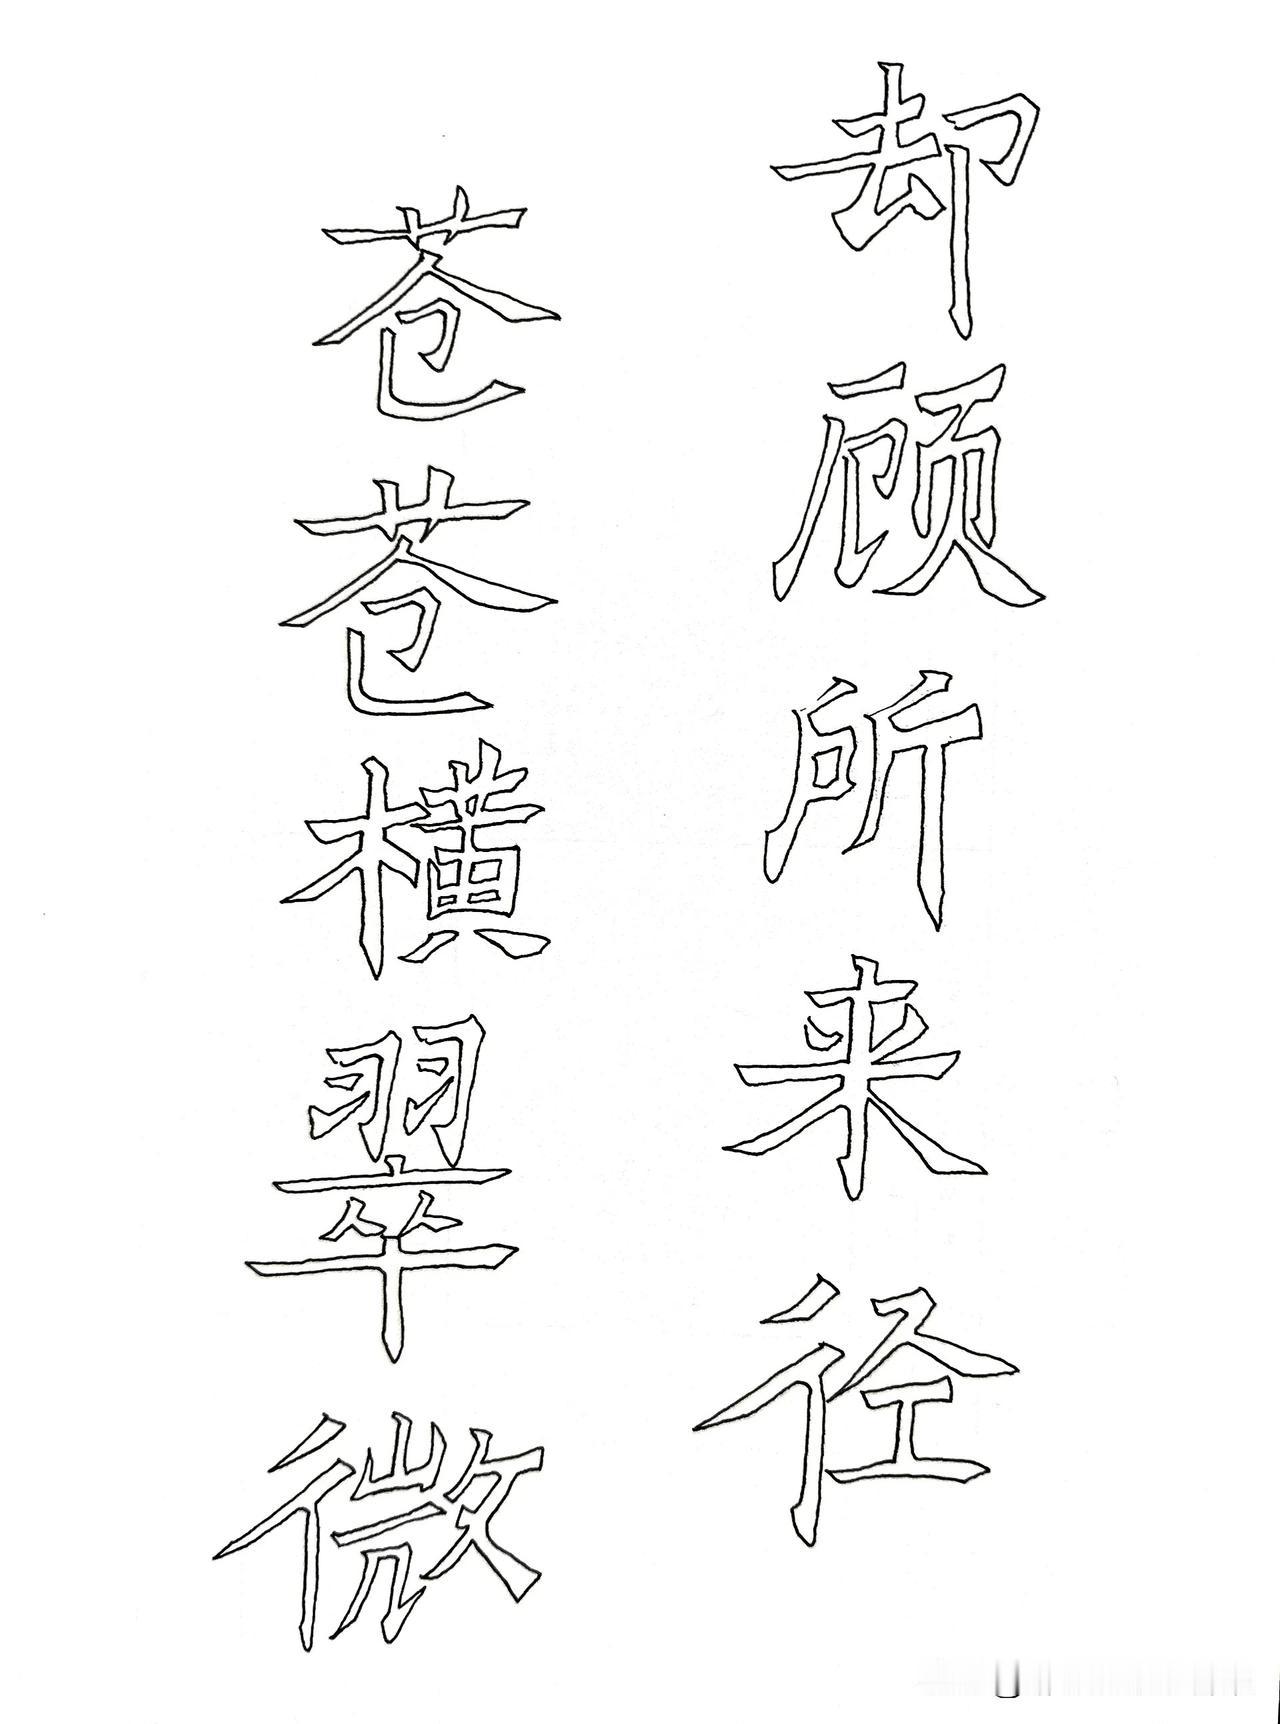 却顾所来径
苍苍横翠微